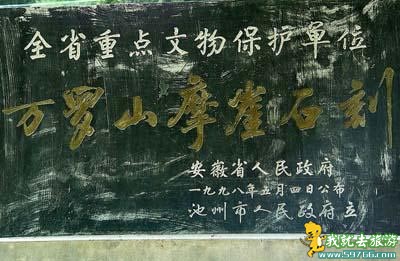 全省重点文物保护單位
万罗山摩崖石刻
安徽省人民政府
一九九八年五月四日公布
池州市人民政府立
我就去旅游
www.59766.com